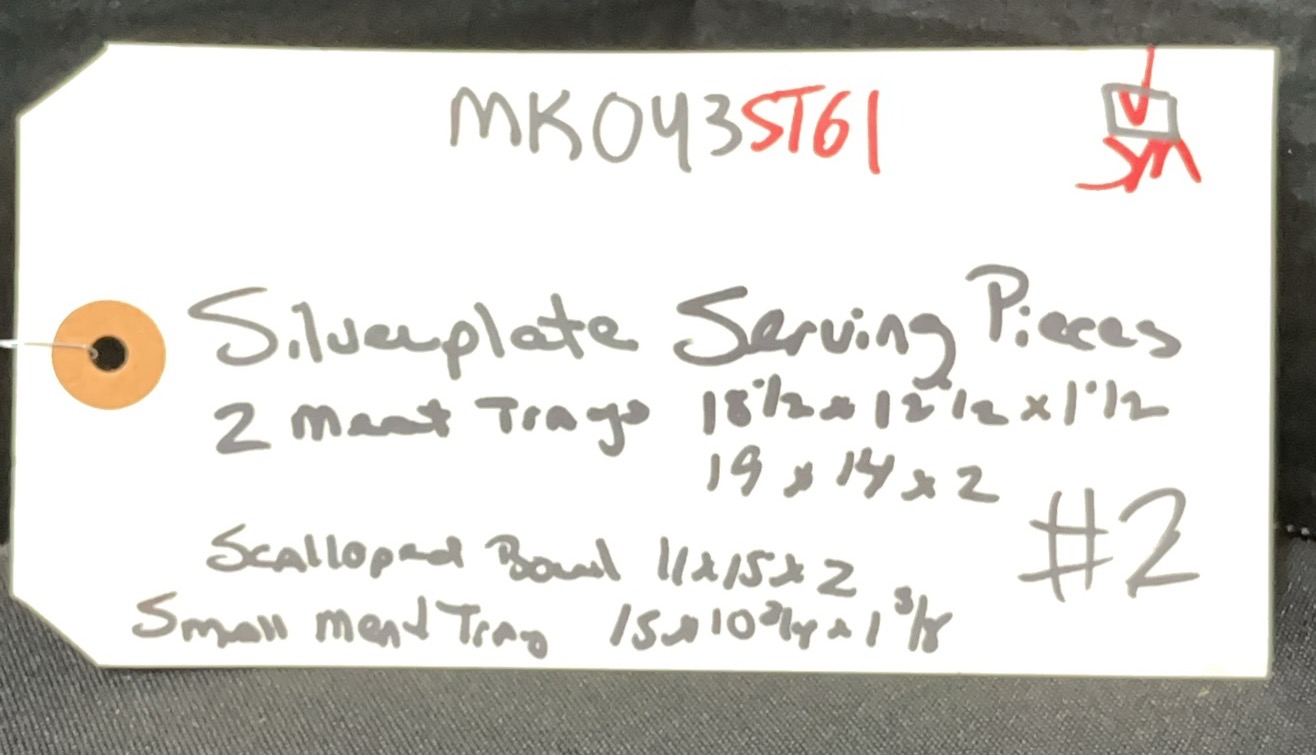 MK043ST61
V
SM
Silverplate Serving Pieces
2 meat Trays 18 1/2 x 12 1/2 x 1 1/2
19 x 14 x 2
#2
Scalloped Bowl 11 x 15 x 2
Small meat Tray 15 x 10 3/4 x 1 3/8